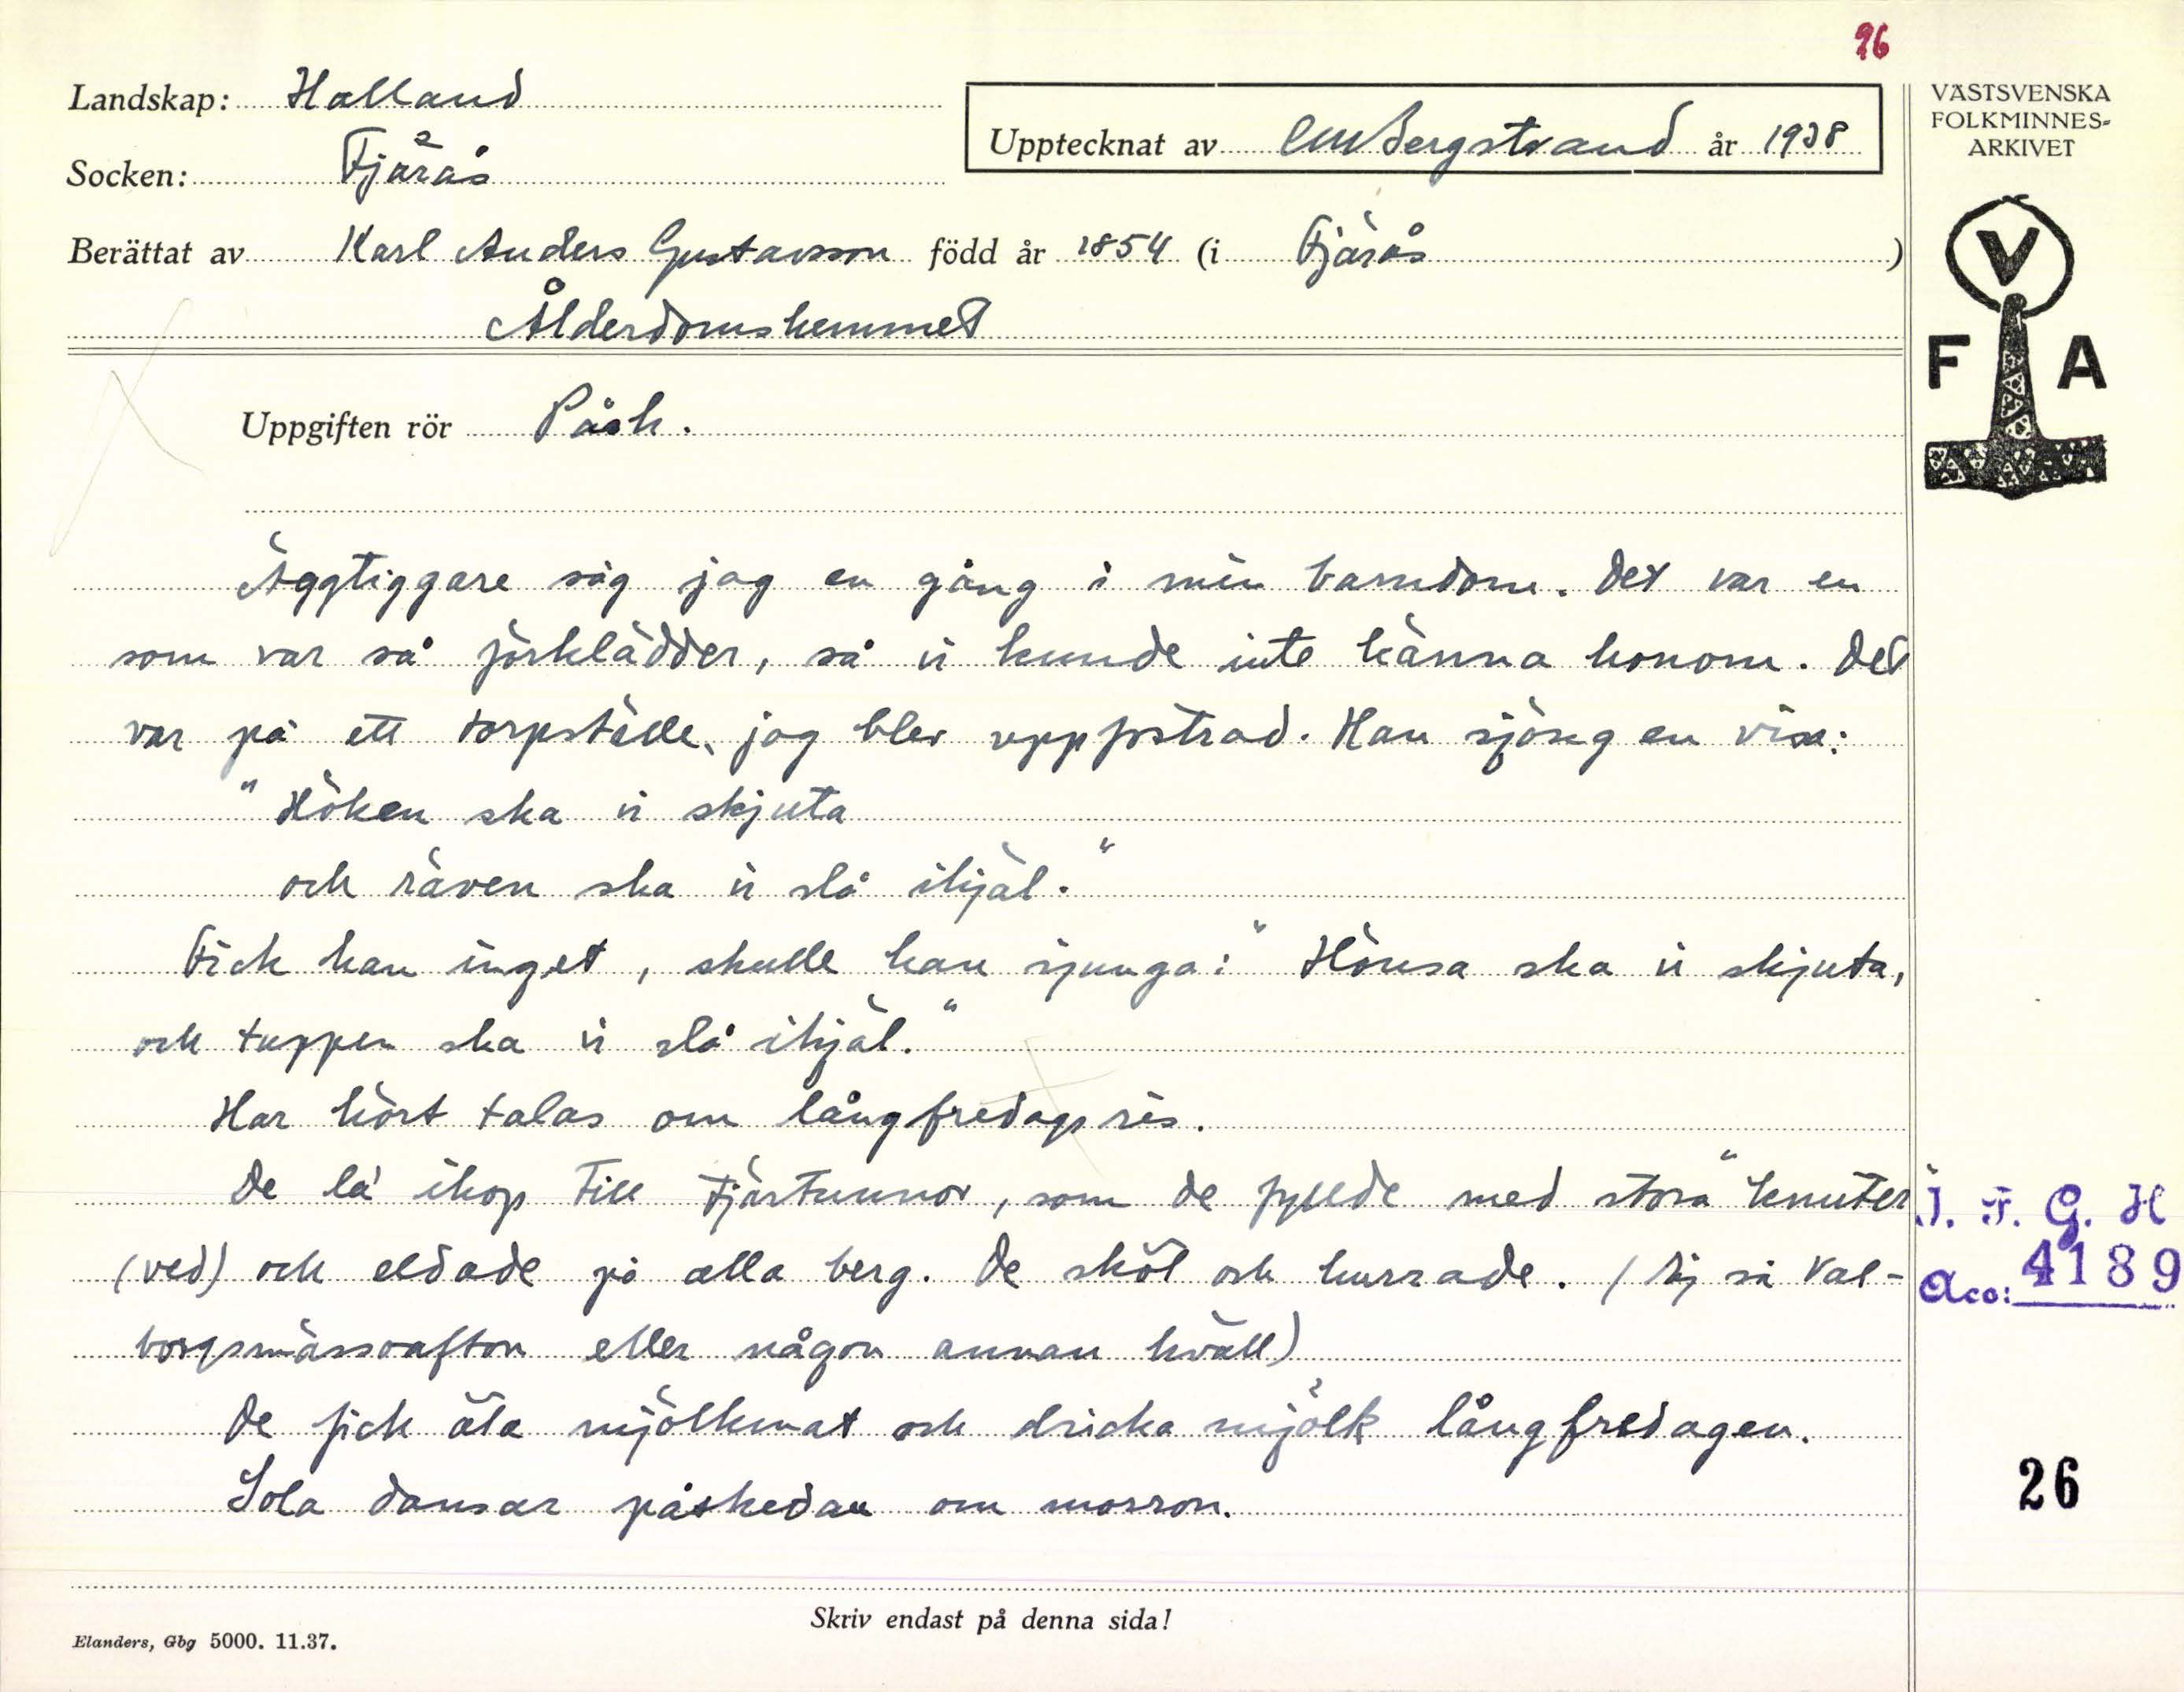 96
Landskap: Halland
Socken: Fjärås
Upptecknat av CMBergstrand år 1938
Berättat av Karl Anders Gustavsson född år 1854 (i Fjärås )
Ålderdomshemmet
Uppgiften rör Påsk.
Äggtiggare såg jag en gång i min barndom. Det var en
som var så förklädder, så vi kunde inte känna honom. Det
var på ett torpställe, jag blev uppfostrad. Han sjöng en visa:
"Höken ska vi skjuta
och räven ska vi slå ihjäl."
Fick han inget, skulle han sjunga: "Hönsa ska vi skjuta,
och tuppen ska vi slå ihjäl."
Har hört talas om långfredagsris.
De la' ihop till tjärtunnor, som de fyllde med stora "knuter
(ved) och eldade på alla berg. De sköt och hurrade. (Ej så Val-
borgsmässoafton eller någon annan kväll)
De fick äta mjölkmat och dricka mjölk långfredagen.
Sola dansar påskedan om morron.
Skriv endast på denna sida!
Elanders, Gbg 5000. 11.37.
VÄSTSVENSKA
FOLKMINNES-
ARKIVET
V
F A
I. F. G. H
Acc: 4189
26